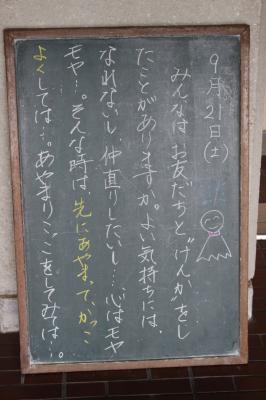 9月21日(土)
みんなは、お友だちと“げんか”をし
たことがありますか。よい気持ちには、
なれないし、仲直りしたいし…心はモヤ
モヤ…。そんな時は、先にあやまって、かっこ
よくしては…。あやまりっこをしてみては…。